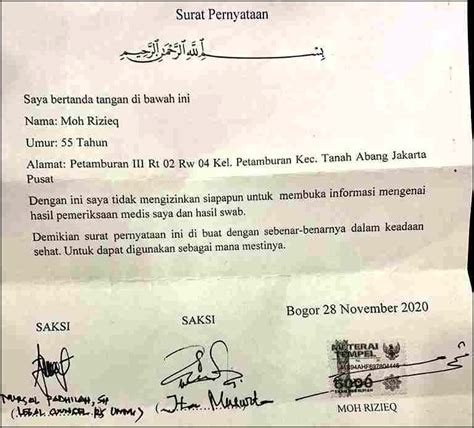 Surat Pernyataan
بِسْــــــمِ اللهِ الرَّحْمَنِ الرَّحِيْمِ
Saya bertanda tangan di bawah ini
Nama: Moh Rizieq
Umur: 55 Tahun
Alamat: Petamburan III Rt 02 Rw 04 Kel. Petamburan Kec. Tanah Abang Jakarta
Pusat
Dengan ini saya tidak mengizinkan siapapun untuk membuka informasi mengenai
hasil pemeriksaan medis saya dan hasil swab.
Demikian surat pernyataan ini di buat dengan sebenar-benarnya dalam keadaan
sehat. Untuk dapat digunakan sebagai mana mestinya.
Bogor 28 November 2020
SAKSI
SAKSI
METERAI
TEMPEL
6000
PADHILAH, SH
MOH RIZIEQ